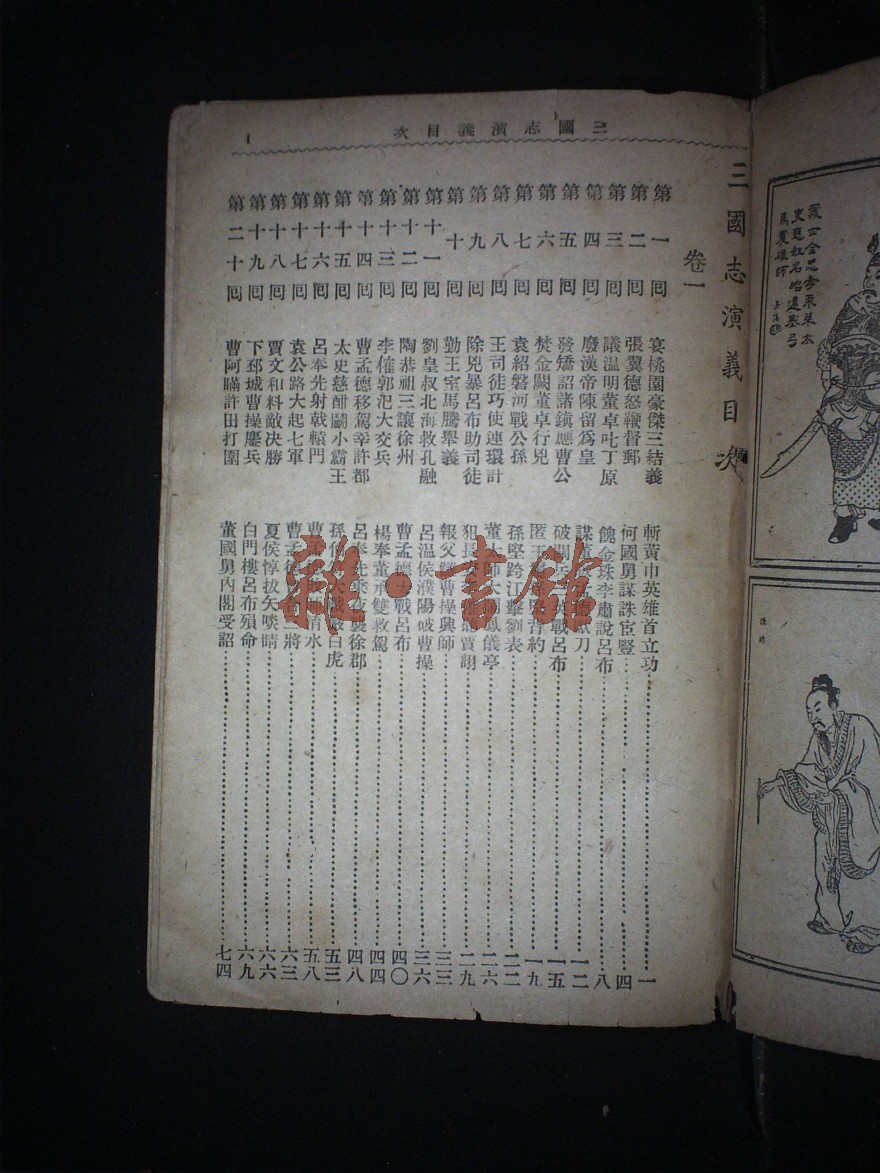 三國志演義目次
1
三國志演義目次
卷一
第一回 宴桃園豪傑三結義 斬黃巾英雄首立功 一
第二回 張翼德怒鞭督郵 何國舅謀誅宦豎 四
第三回 議溫明董卓叱丁原 餽金珠李肅說呂布 八
第四回 廢漢帝陳留爲皇 謀董 刀 一二
第五回 發矯詔諸鎮應曹公 破關 戰呂布 一五
第六回 焚金闕董卓行兇 匿玉 背約 一九
第七回 袁紹磐河戰公孫 孫堅跨江擊劉表 二二
第八回 王司徒巧使連環計 董太師大鬧鳳儀亭 二六
第九回 除兇暴呂布助司徒 犯長 賈詡 二九
第十回 勤王室馬騰舉義 報父讐曹操興師 三三
第十一回 劉皇叔北海救孔融 呂溫侯濮陽破曹操 三六
第十二回 陶恭祖三讓徐州 曹孟德大戰呂布 四〇
第十三回 李傕郭汜大交兵 楊奉董承雙救駕 四四
第十四回 曹孟德移駕幸許都 呂奉先乘夜襲徐郡 四八
第十五回 太史慈酣鬬小霸王 孫 大戰嚴白虎 五三
第十六回 呂奉先射戟轅門 曹孟德敗師淯水 五八
第十七回 袁公路大起七軍 曹孟德 三將 六三
第十八回 賈文和料敵決勝 夏侯惇拔矢啖睛 六六
第十九回 下邳城曹操鏖兵 白門樓呂布殞命 六九
第二十回 曹阿瞞許田打圍 董國舅內閣受詔 七四
雜·書館